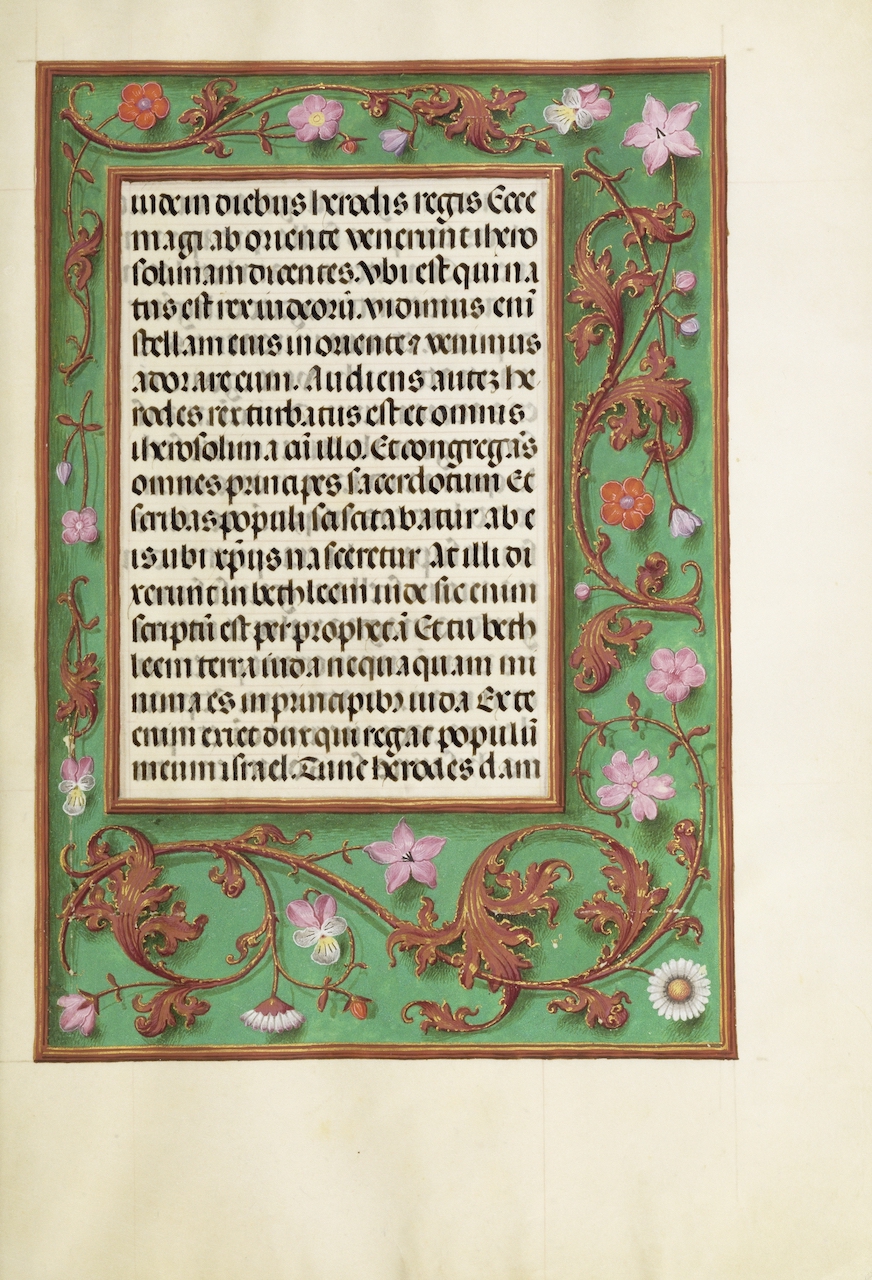 iude in diebus herodis regis Ecce
magi ab oriente venerunt ihero
solimam dicentes. Vbi est qui na
tus est rex iudeorū. vidimus enī
stellam eius in oriente ⁊ venimus
adorare eum. Audiens autez he
rodes rex turbatus est et omnis
iherosolima cū illo. Et congregās
omnes principes sacerdotum Et
scribas populi sciscitabatur ab e
is ubi xp̄us nasceretur At illi di
xerunt in bethleem iude sic enim
scriptū est per prophetā Et tu beth
leem terra iuda nequaquam mi
nima es in principibꝫ iuda Ex te
enim exiet dux qui regat populū
meum israel. Tunc herodes clam